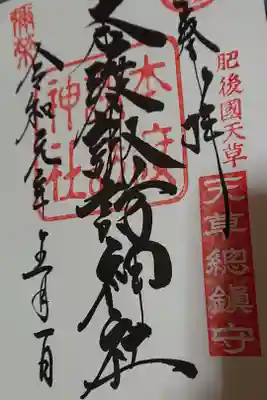 肥後國天草
天草總鎮守
奉拝
本渡諏訪神社
本渡
神社
彌榮
令和元年五月一日